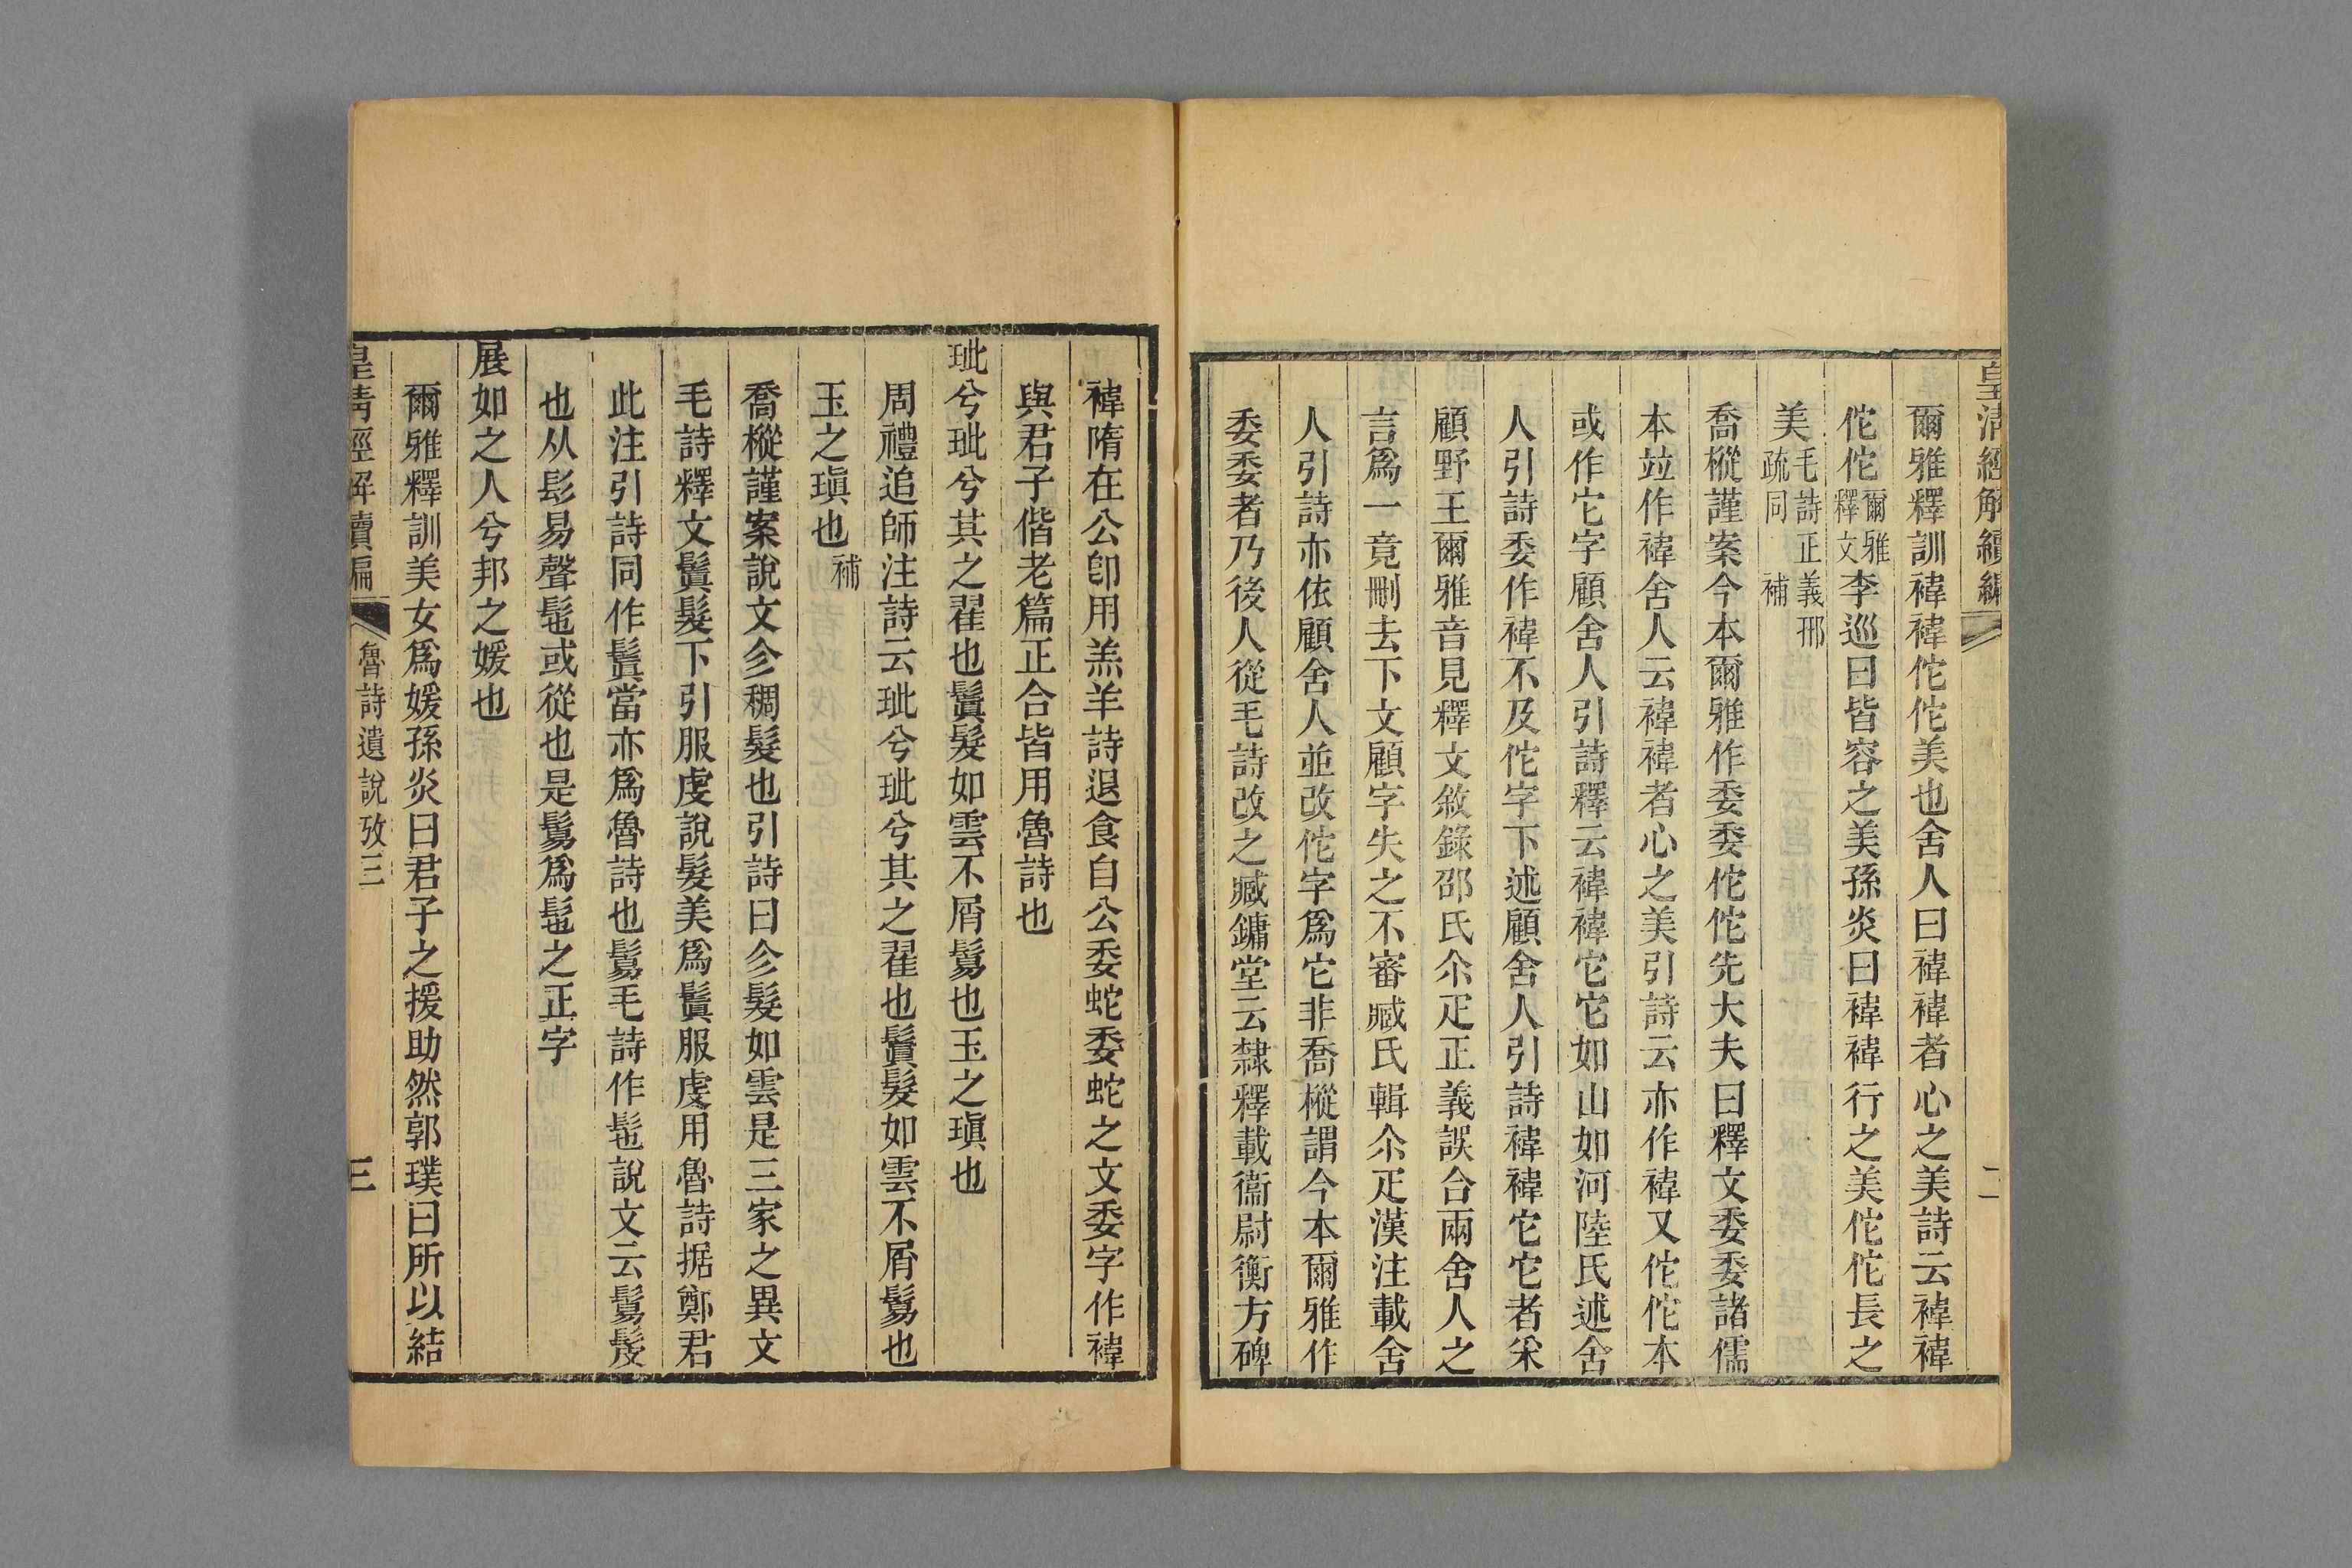 皇清經解續編
二
爾雅釋訓褘褘佗佗美也舍人曰褘褘者心之美詩云褘褘
佗佗爾雅釋文李巡曰皆容之美孫炎曰褘褘行之美佗佗長之
美毛詩正義邢疏同補
喬樅謹案今本爾雅作委委佗佗先大夫曰釋文委委諸儒
本竝作褘舍人云褘褘者心之美引詩云亦作褘又佗佗本
或作它字顧舍人引詩釋云褘褘它它如山如河陸氏述舍
人引詩委作褘不及佗字下述顧舍人引詩褘褘它它者釆
顧野王爾雅音見釋文敘錄邵氏尒疋正義誤合兩舍人之
言爲一竟刪去下文顧字失之不審臧氏輯尒疋漢注載舍
人引詩亦依顧舍人並改佗字爲它非喬樅謂今本爾雅作
委委者乃後人從毛詩改之臧鏞堂云隸釋載衞尉衡方碑
褘隋在公卽用羔羊詩退食自公委蛇委蛇之文委字作褘
與君子偕老篇正合皆用魯詩也
玼兮玼兮其之翟也鬒髮如雲不屑鬄也玉之瑱也
周禮追師注詩云玼兮玼兮其之翟也鬒髮如雲不屑鬄也
玉之瑱也補
喬樅謹案說文㐱稠髮也引詩曰㐱髮如雲是三家之異文
毛詩釋文鬒髮下引服虔說髮美爲鬒服虔用魯詩据鄭君
此注引詩同作鬒當亦爲魯詩也鬄毛詩作髢說文云鬄髲
也从髟易聲髢或從也是鬄爲髢之正字
展如之人兮邦之媛也
爾雅釋訓美女爲媛孫炎曰君子之援助然郭璞曰所以結
皇清經解續編
魯詩遺說攷三
三